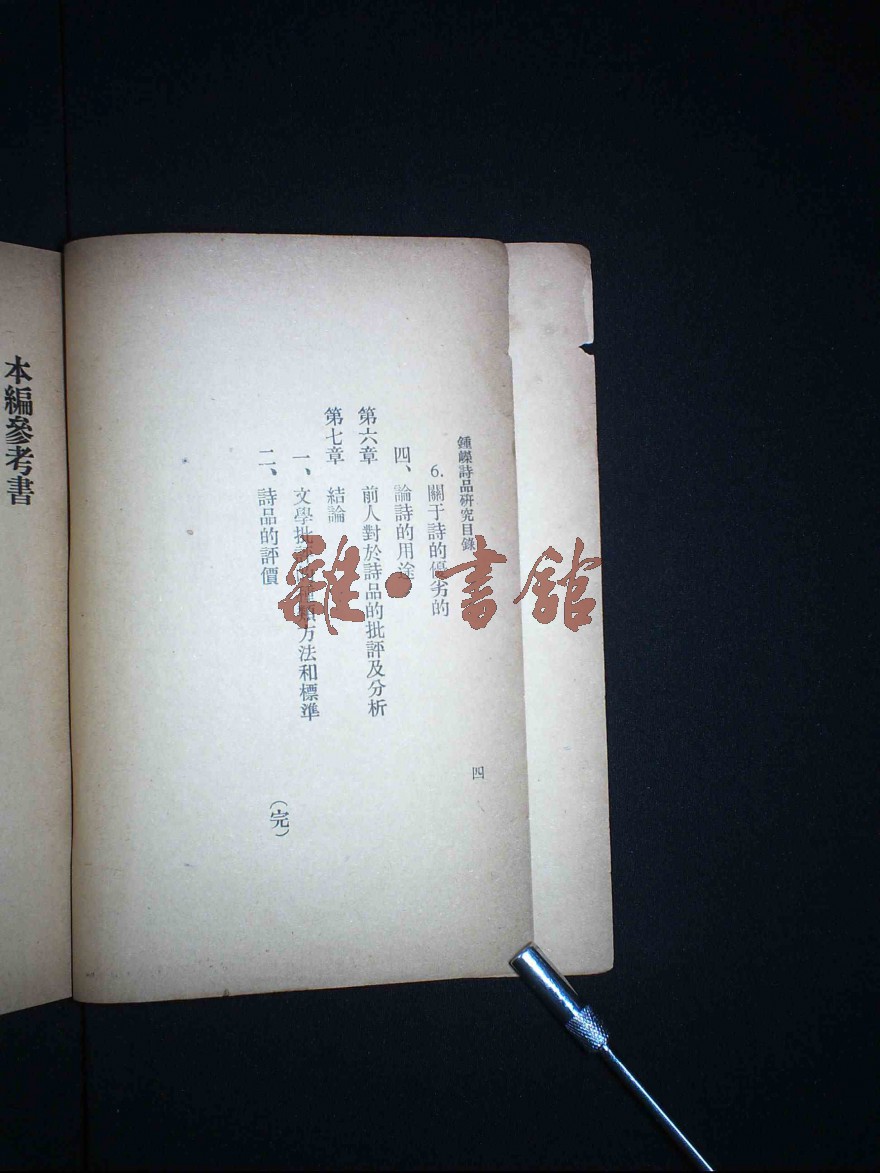 鍾嶸詩品研究目錄
四
6.關于詩的優劣的
四、論詩的用途
第六章 前人對於詩品的批評及分析
第七章 結論
一、文學批評的種類方法和標準
二、詩品的評價
(完)
本編參考書
雜·書館